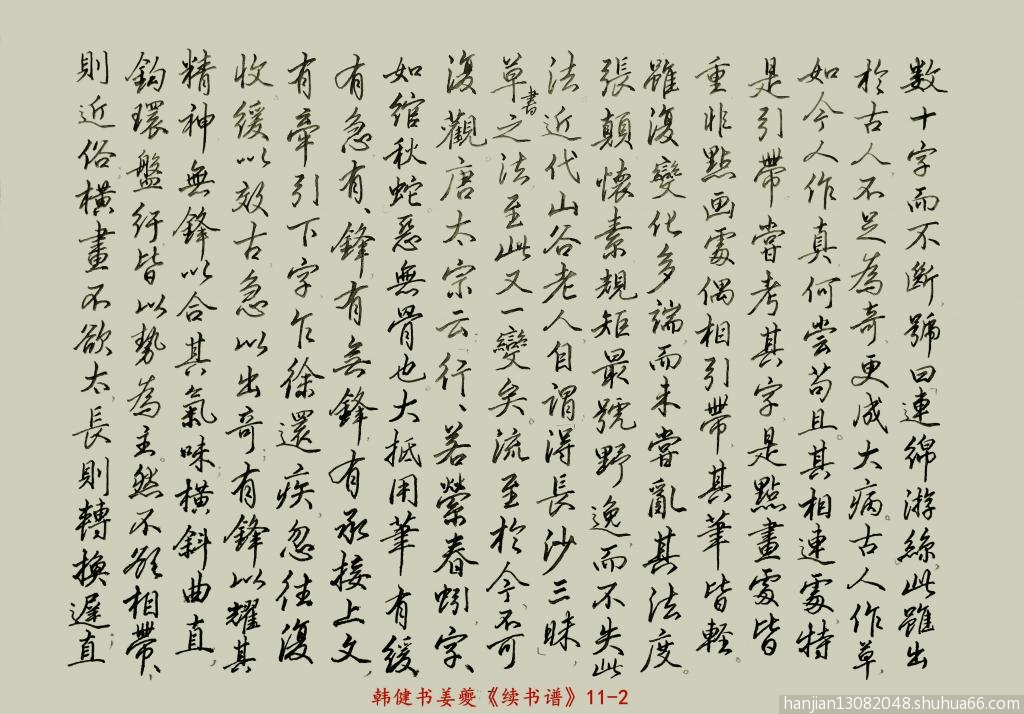 数十字而不斷號曰連綿游絲此雖出
於古人不足為奇更成大病古人作草
如今人作真何尝苟且其相連處特
是引帶嘗考其字是點畫處皆
重非點画處偶相引帶其筆皆輕
雖復變化多端而未嘗亂其法度
張顛懷素規矩最號野逸而不失此
法近代山谷老人自謂得長沙三昧
草書之法至此又一變矣流至於今不可
復觀唐太宗云行、若縈春蚓字、
如绾秋蛇惡無骨也大抵用筆有缓
有急有、鋒有無鋒有承接上文
有牽引下字乍徐還疾忽往復
收缓以效古急以出奇有鋒以耀其
精神無鋒以含其氣味橫斜曲直
鈎環盤紆皆以勢為主然不欲相帶、
則近俗橫畫不欲太長則轉換遲直
韩健书姜夔《续书谱》11-2
hanjian13082048.shuhua66.com